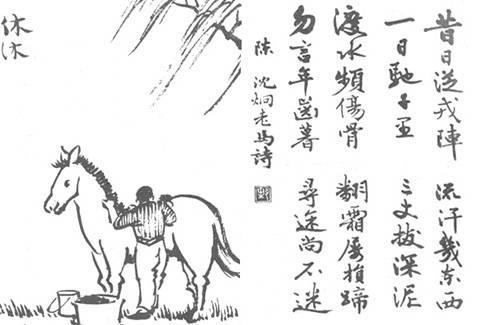 昔日從戎陣 流汗幾東西
一日馳千里 三丈拔深泥
渡水頻傷骨 翻霜屢損蹄
勿言年齒暮 尋途尚不迷
陳 沈炯老馬詩
休休